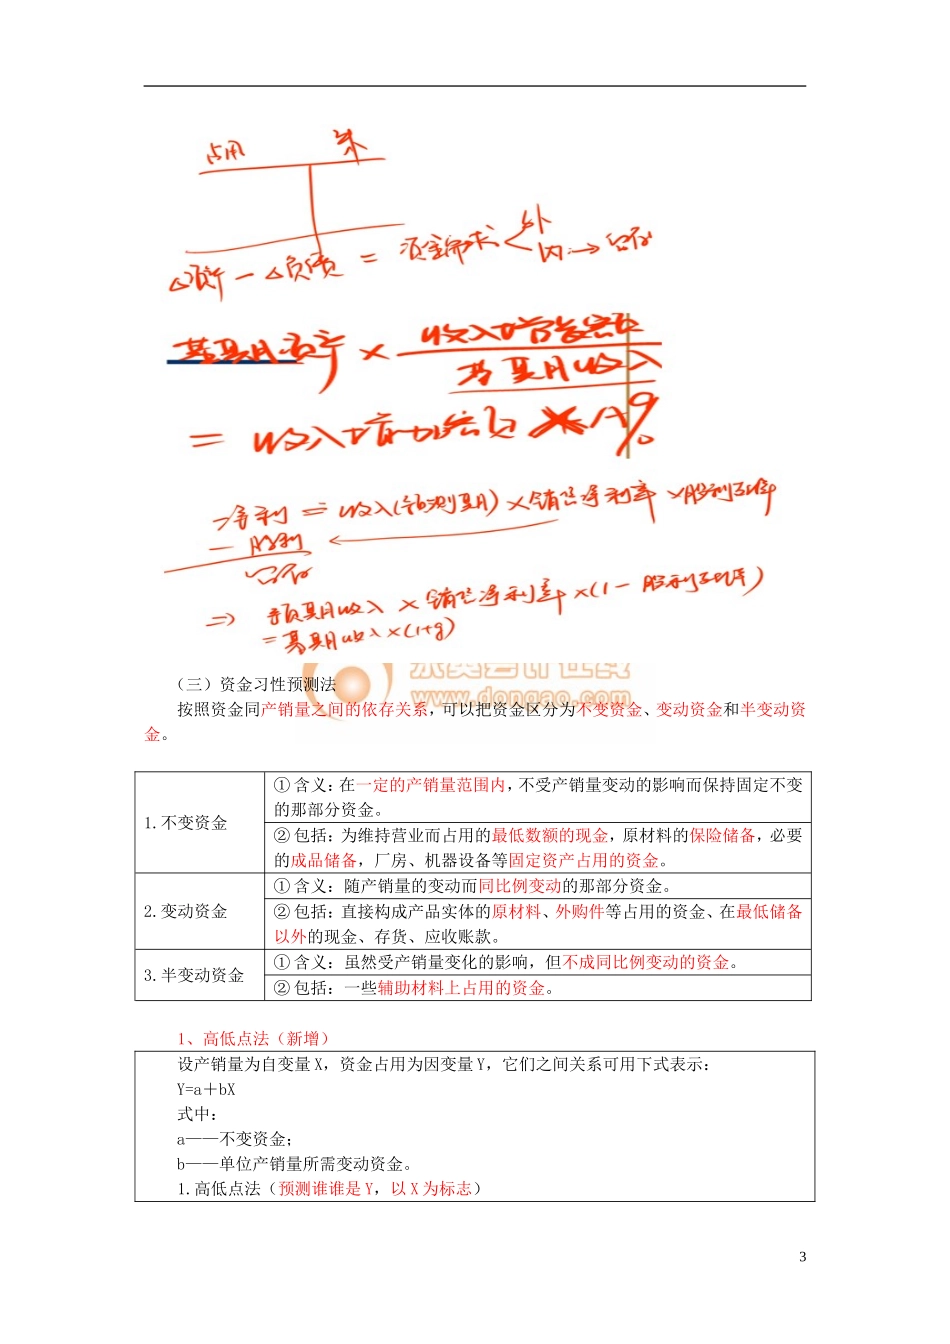 占用 来
△资产－△负债＝资金需求 外
内→留存
基期资产×收入增加额
基期收入
＝收入增加额×A%
净利＝收入(预测期)×销售净利率×股利支付率
－股利
留存
⇒ 预期收入×销售净利率×(1－股利支付率)
＝基期收入×(1+g)
www.dongao.com
（三）资金习性预测法
按照资金同产销量之间的依存关系，可以把资金区分为不变资金、变动资金和半变动资
金。
1.不变资金
①含义：在一定的产销量范围内，不受产销量变动的影响而保持固定不变
的那部分资金。
②包括：为维持营业而占用的最低数额的现金，原材料的保险储备，必要
的成品储备，厂房、机器设备等固定资产占用的资金。
2.变动资金
①含义：随产销量的变动而同比例变动的那部分资金。
②包括：直接构成产品实体的原材料、外购件等占用的资金、在最低储备
以外的现金、存货、应收账款。
3.半变动资金
①含义：虽然受产销量变化的影响，但不成同比例变动的资金。
②包括：一些辅助材料上占用的资金。
1、高低点法（新增）
设产销量为自变量 X，资金占用为因变量 Y，它们之间关系可用下式表示：
Y=a＋bX
式中：
a——不变资金；
b——单位产销量所需变动资金。
1.高低点法（预测谁谁是 Y，以 X 为标志）
3